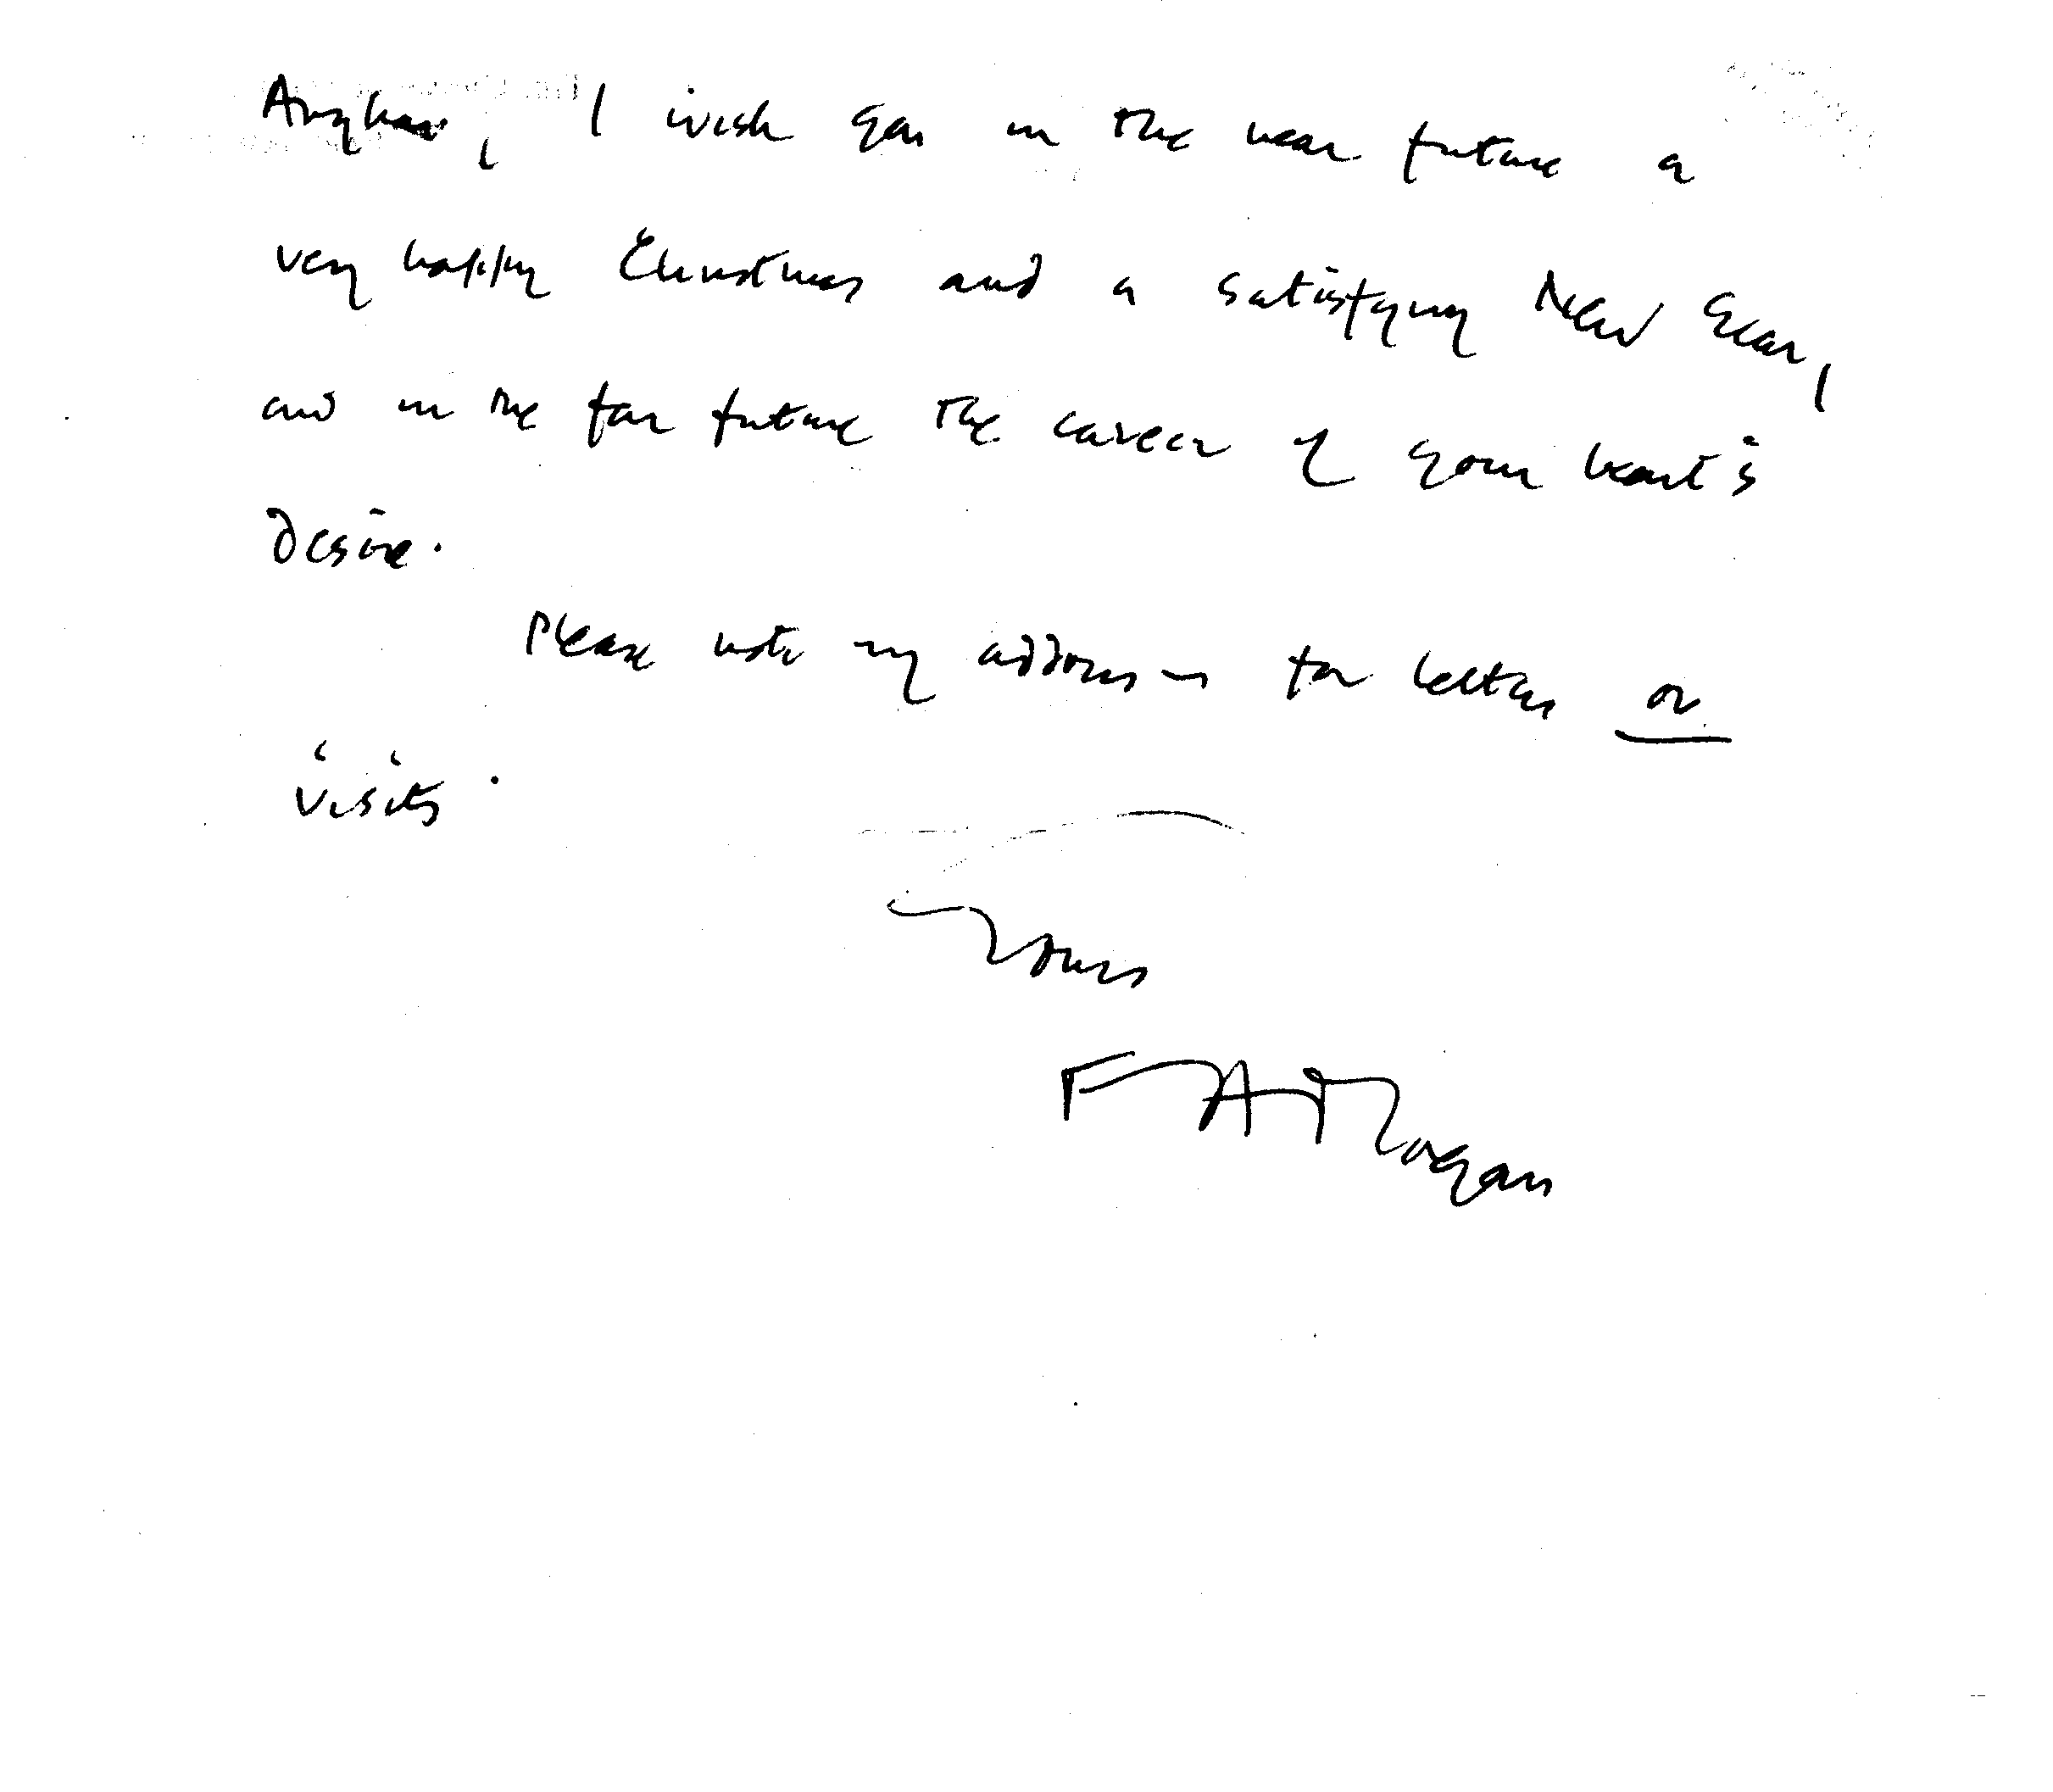 Anyhow, I wish you in the near future a
very happy Christmas and a satisfying New Year,
and in the far future the career of your heart's
desire.
Please note my address – for letters or
visits.
Yours
F A Morgan